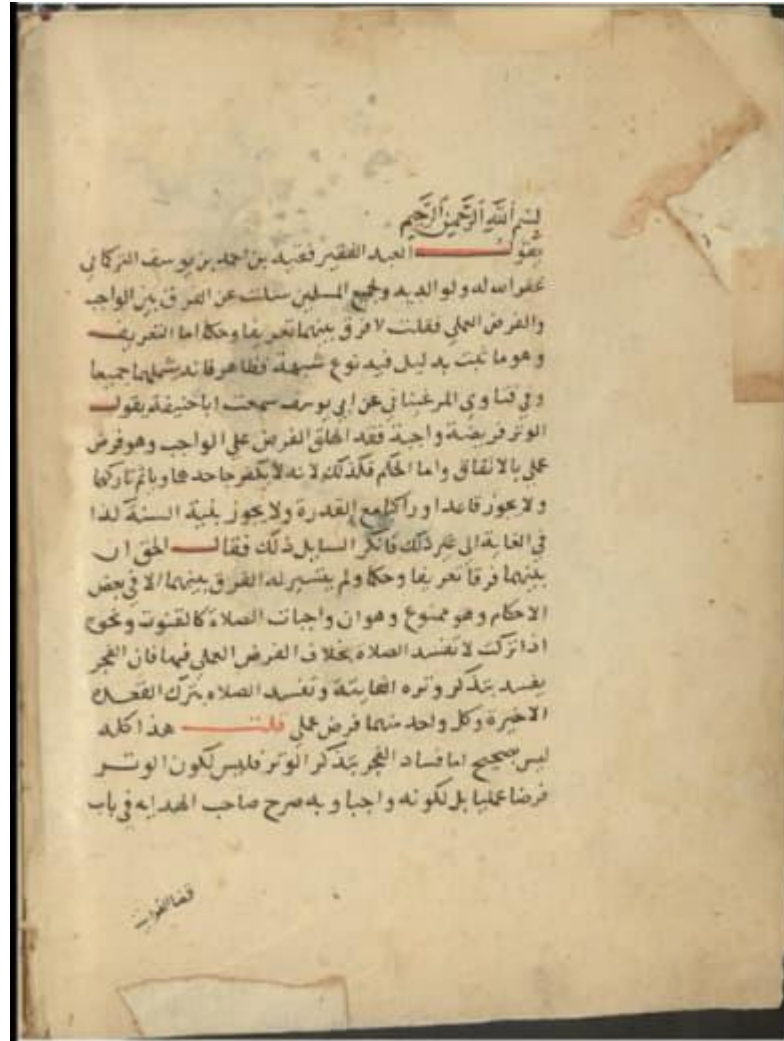 بسم الله الرحمن الرحيم
يقول العبد الفقير فقيد بن احمد بن يوسف التركماني
غفر الله له ولوالديه ولجميع المسلمين سئلت عن الفرق بين الواجب
والفرض العملي فقلت لا فرق بينهما تعريفا وحكما اما التعريف
وهو ما ثبت بدليل فيه نوع شبهة فظاهر فانه يشملهما جميعا
وفي فتاوي المرغيناني عن ابي يوسف سمعت ابا حنيفة يقول
الوتر فريضة واجبة فقد اطلق الفرض علي الواجب وهو فرض
عملي بالاتفاق واما الحكم فكذلك لانه لا يكفر جاحدهما وياثم تاركهما
ولا يجوز قاعدا وراكبا مع القدرة ولا يجوز بنية السنة لذا
في الغاية الي غير ذلك فانكر السايل ذلك فقال الحق ان
بينهما فرقا تعريفا وحكما ولم يتيسر له الفرق بينهما الا في بعض
الاحكام وهو ممنوع وهو ان واجبات الصلاة كالقنوت ونحوه
اذا تركت لا تفسد الصلاة بخلاف الفرض العملي فيها فان الفجر
يفسد بتذكر وتره الفايتة وتفسد الصلاة بترك القعدة
الاخيرة وكل واحد منهما فرض عملي قلت هذا كله
ليس بصحيح اما فساد الفجر بتذكر الوتر فليس لكون الوتر
فرضا عمليا بل لكونه واجبا وبه صرح صاحب الهدايه في باب
قضا الفوايت